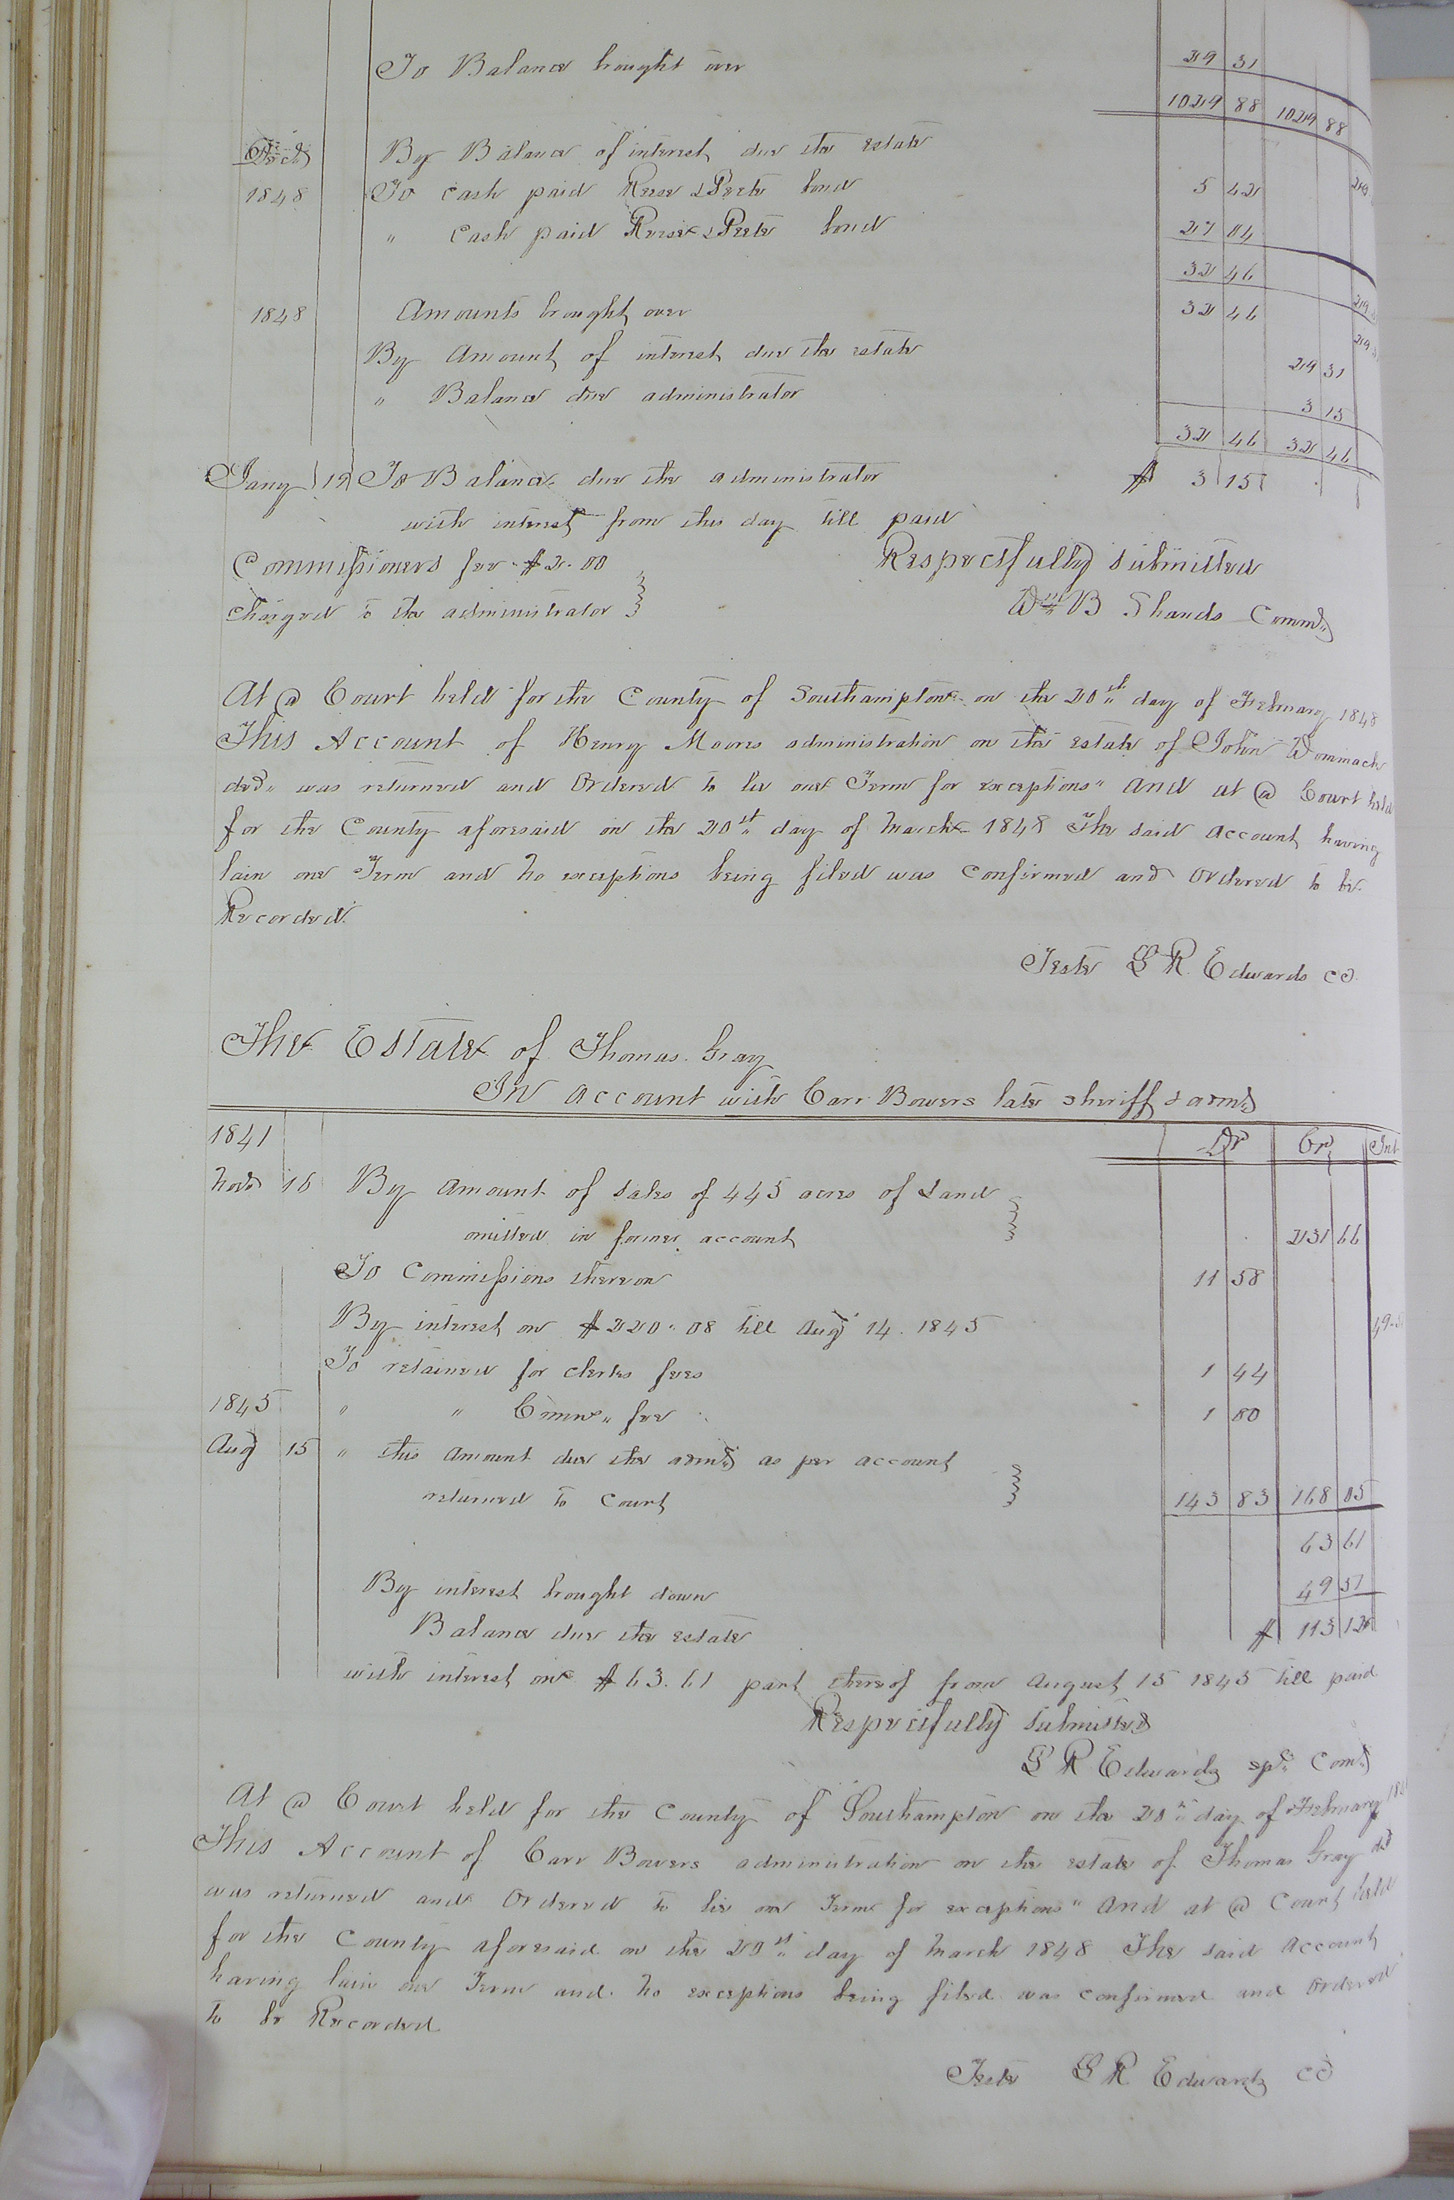 To Balance brought over 29 31
1029 88 1029 88
By Balance of interest due the estate 29
1848 To Cash paid Reese & Peete bond 5 42
" Cash paid Reese & Peete bond 27 04
32 46
1848 Amounts brought over 32 46 29
By Amount of interest due the estate 29 31
" Balance due administrator 3 15
32 46 32 46
Jany 19 To Balance due the administrator $ 3 15
with interest from this day till paid
Commissioners fee $2.00 Respectfully submitted
Charged to the administrator Wm B Shands Commr
At a Court held for the County of Southampton on the 20th day of February 1848
This Account of Henry Moores administration on the estate of John Wommack
decd was returned and Ordered to lie one Term for exceptions" And at a Court held
for the County aforesaid on the 20th day of March 1848 The said Account having
lain one Term and No exceptions being filed was Confirmed and Ordered to be
Recorded.
Teste L R Edwards CC
The Estate of Thomas Gray
In Account with Carr Bowers late sheriff & admr
1841 Dr Cr Int
Novr 16 By Amount of sales of 445 acres of Land
omitted in former account 231 66
To Commissions thereon 11 58
By interest on $220.08 till Augt 14. 1845 49
To retained for clerks fees 1 44
1845 " " Commrs fee 1 80
Augt 15 " this Amount due the admr as per account
returned to Court 143 83 168 05
63 61
By interest brought down 49 51
Balance due the estate $ 113 12
with interest on $63.61 part thereof from August 15 1845 till paid
Respectfully submitted
L R Edwards spl Comr
At a Court held for the County of Southampton on the 20th day of February
This Account of Carr Bowers administration on the estate of Thomas Gray decd
was returned and Ordered to lie one Term for exceptions" And at a Court held
for the County aforesaid on the 20th day of March 1848 The said Account
having lain one Term and No exceptions being filed was confirmed and Ordered
to be Recorded
Teste L R Edwards CC